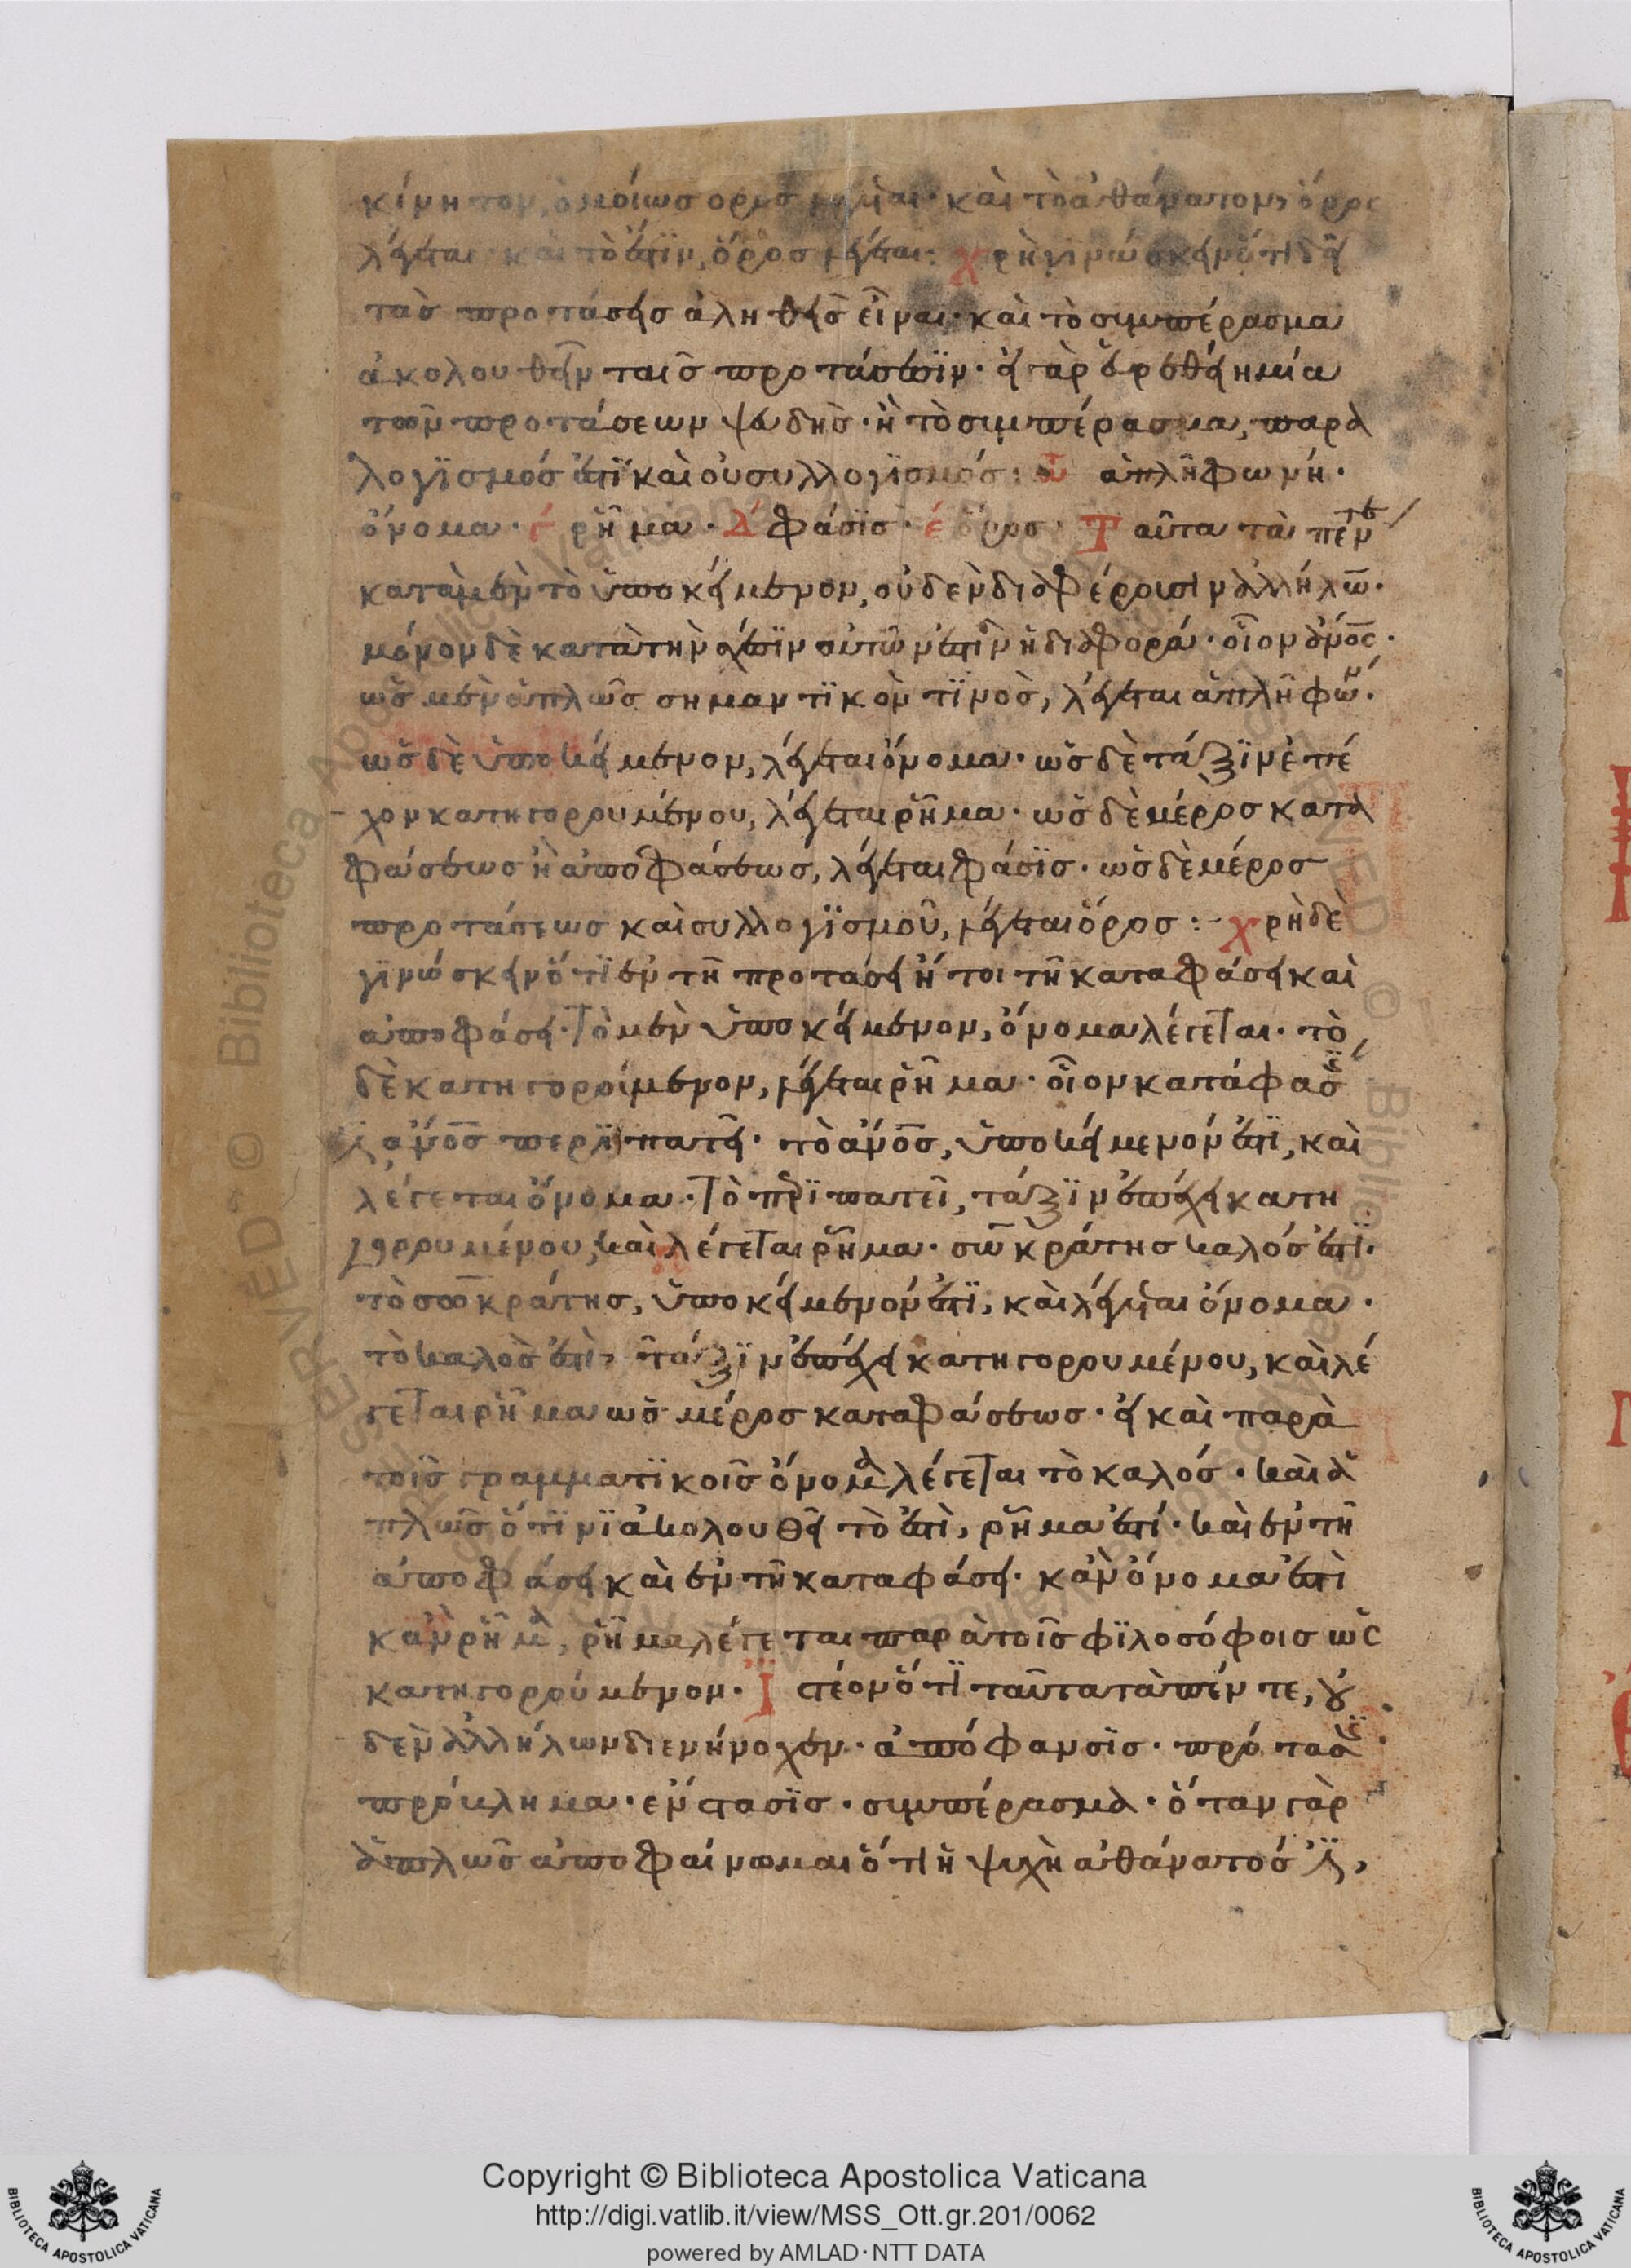 κίνητον, ὁμοίωσ ὅροσ λέγεται· καὶ τὸ ἀθάνατον, ὅροσ
λέγεται· καὶ τὸ ἐστὶν, ὅροσ λέγεται: χρὴ γινώσκειν ὅτι δεῖ
τὰσ προτάσεισ ἀληθεῖσ εἶναι· καὶ τὸ συμπέρασμα
ἀκολουθεῖν ταῖσ προτάσεσϊν· εἰ γὰρ εὑρεθείη μία
τῶν προτάσεων ψευδὴσ· ἢ τὸ συμπέρασμα, παρα
λογϊσμόσ ἐστϊ καὶ οὐ συλλογϊσμόσ: ἁπλῆ φωνή·
ὄνομα· γ́ ῥῆμα· δ́ φάσϊσ· έ ὅροσ· Ταῦτα τὰ πέντε
κατὰ μὲν τὸ ὑποκείμενον, οὐδὲν διαφέρουσιν ἀλλήλων·
μόνον δὲ κατὰ τὴν σχέσϊν αὐτῶν ἐστὶν ἡ διαφορά· οἷον ἄνος·
ὡσ μὲν ἁπλῶσ σημαντϊκὸν τϊνὸσ, λέγεται ἁπλῆ φων·
ὡσ δὲ ὑποκείμενον, λέγεται ὄνομα· ὡσ δὲ τάξϊν ἐπέ
χον κατηγορουμένου, λέγεται ῥῆμα· ὡσ δὲ μέροσ κατα
φάσεωσ ἢ ἀποφάσεωσ, λέγεται φάσϊσ· ὡσ δὲ μέροσ
προτάσεωσ καὶ συλλογϊσμοῦ, λέγεται ὅροσ: χρὴ δὲ
γϊνώσκειν ὅτϊ ἐν τῆ προτάσει ἤτοι τῆ καταφάσει καὶ
ἀποφάσει· Τὸ μὲν ὑποκείμενον, ὄνομα λέγεται· τὸ
δὲ κατηγορούμενον, λέγεται ῥῆμα· οἷον κατάφασϊς
ἄνοσ περϊπατεῖ· τὸ ἄνοσ, ὑποκείμενόν ἐστϊ, καὶ
λέγεται ὄνομα· Τὸ περϊπατεῖ, τάξϊν ἐπέχει κατη
γορουμένου, καὶ λέγεται ῥῆμα· σωκράτησ καλόσ ἐστϊ·
τὸ σωκράτησ, ὑποκείμενόν ἐστϊ, καὶ λέγεται ὄνομα·
τὸ καλὸσ ἐστὶ, τάξϊν ἐπέχει κατηγορουμένου, καὶ λέ
γεται ῥῆμα ὡσ μέροσ καταφάσεωσ· εἰ καὶ παρὰ
τοῖσ γραμματϊκοῖσ ὄνομα λέγεται τὸ καλόσ· καὶ ἁ
πλῶσ ὅτϊνϊ ἀκολουθεῖ τὸ ἐστὶ, ῥῆμα ἐστί· καὶ ἐν τῆ
ἀποφάσει καὶ ἐν τῆ καταφάσει· κἂν ὄνομα ἐστὶ
κἂν ῥῆμα, ῥῆμα λέγεται παρὰ τοῖσ φϊλοσόφοισ ὡς
κατηγορούμενον· Ἰστέον ὅτϊ ταῦτα τὰ πέντε, οὐ
δὲν ἀλλήλων διενήνοχεν· ἀπόφανσϊσ· πρότασϊς·
πρόκλημα· ἔνστασϊσ· συμπέρασμα· ὅταν γὰρ
ἁπλῶσ ἀποφαίνωμαι ὅτι ἡ ψυχὴ ἀθάνατοσ ἐστϊ,
Copyright © Biblioteca Apostolica Vaticana
http://digi.vatlib.it/view/MSS_Ott.gr.201/0062
powered by AMLAD·NTT DATA
BIBLIOTECA APOSTOLICA VATICANA
BIBLIOTECA APOSTOLICA VATICANA